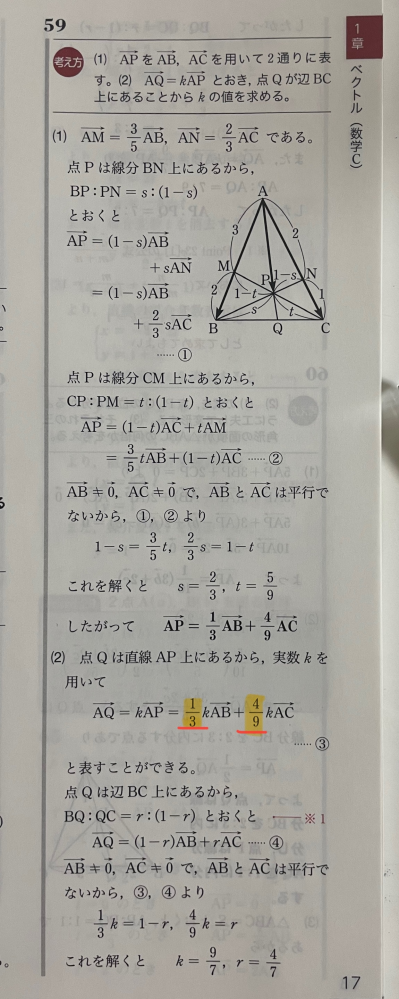 59
1章 ベクトル（数学C）
考え方 (1) APをAB, ACを用いて2通りに表
す。(2) AQ=kAPとおき，点Qが辺BC
上にあることからkの値を求める。
(1) AM=3/5AB, AN=2/3AC である。
点Pは線分BN上にあるから，
BP：PN=s：(1−s)
とおくと
AP=(1−s)AB
+sAN
=(1−s)AB
+2/3sAC
……①
A
3
2
M
N
P
1−s
2
1−t
1
s
t
B
Q
C
点Pは線分CM上にあるから，
CP：PM=t：(1−t) とおくと
AP=(1−t)AC+tAM
=3/5tAB+(1−t)AC ……②
AB≠0, AC≠0 で，ABとACは平行で
ないから，①，②より
1−s=3/5t, 2/3s=1−t
これを解くと s=2/3, t=5/9
したがって AP=1/3AB+4/9AC
(2) 点Qは直線AP上にあるから，実数kを
用いて
AQ=kAP=1/3kAB+4/9kAC
……③
と表すことができる。
点Qは辺BC上にあるから，
BQ：QC=r：(1−r) とおくと ※1
AQ=(1−r)AB+rAC ……④
AB≠0, AC≠0 で，ABとACは平行で
ないから，③，④より
1/3k=1−r, 4/9k=r
これを解くと k=9/7, r=4/7
17